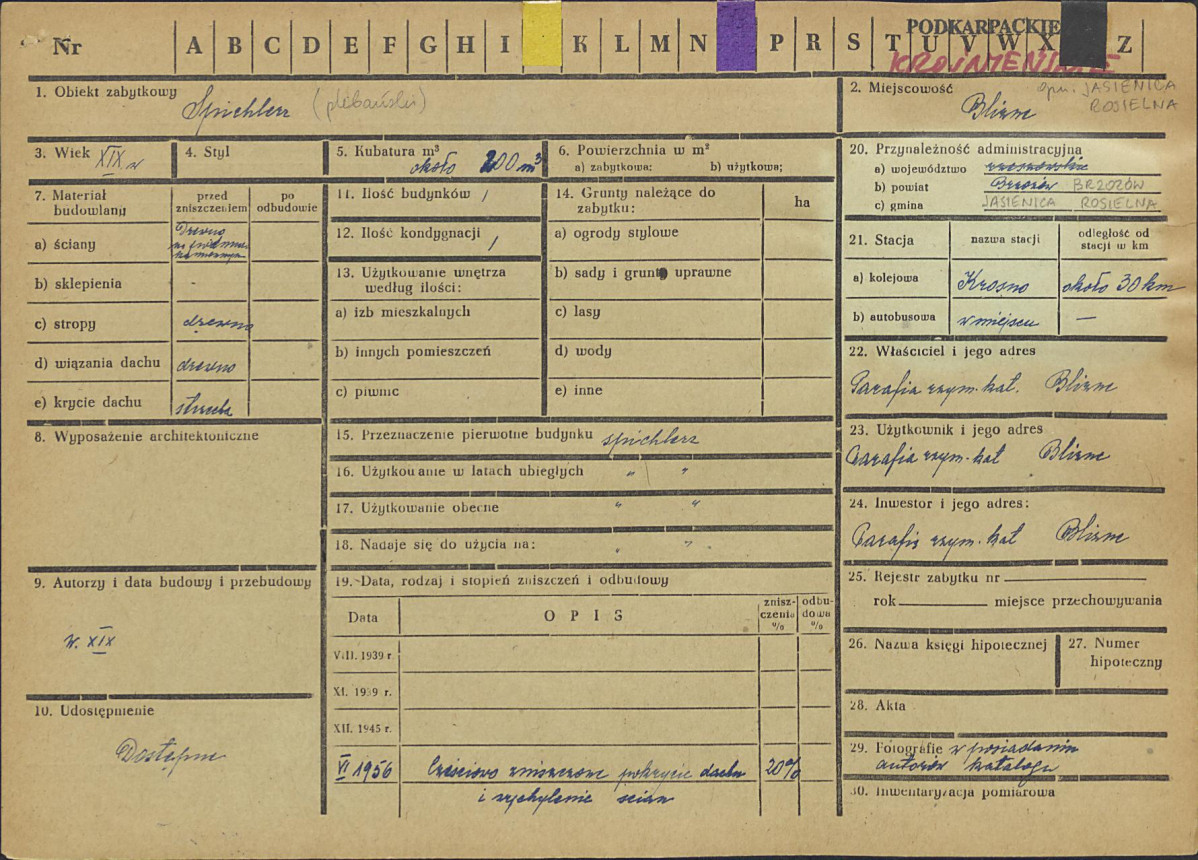 Nr A B C D E F G H I K L M N P R S T U V W X Z
PODKARPACKIE
KROŚNIEŃSKIE
1. Obiekt zabytkowy
Spichlerz (plebański)
2. Miejscowość gm. JASIENICA
ROSIELNA
Blizne
3. Wiek XIX w
4. Styl
5. Kubatura m³
około 200 m³
6. Powierzchnia w m²
a) zabytkowa: b) użytkowa;
7. Materiał budowlany
przed zniszczeniem
po odbudowie
a) ściany
Drewno
b) sklepienia -
c) stropy drewno
d) wiązania dachu drewno
e) krycie dachu strzecha
8. Wyposażenie architektoniczne
9. Autorzy i data budowy i przebudowy
w. XIX
10. Udostępnienie
Dostępne
11. Ilość budynków /
12. Ilość kondygnacji /
13. Użytkowanie wnętrza
według ilości:
a) izb mieszkalnych
b) innych pomieszczeń
c) piwnic
14. Grunty należące do
zabytku: ha
a) ogrody stylowe
b) sady i grunty uprawne
c) lasy
d) wody
e) inne
15. Przeznaczenie pierwotne budynku spichlerz
16. Użytkowanie w latach ubiegłych " "
17. Użytkowanie obecne " "
18. Nadaje się do użycia na: " "
19. Data, rodzaj i stopień zniszczeń i odbudowy
Data
OPIS
znisz-
czenia
%
odbu-
dowa
%
VIII. 1939 r.
XI. 1939 r.
XII. 1945 r.
VI 1956 Częściowo zniszczone pokrycie dachu 20%
i wychylenie ścian
20. Przynależność administracyjna
a) województwo rzeszowskie
b) powiat Brzozów BRZOZÓW
c) gmina JASIENICA ROSIELNA
21. Stacja
nazwa stacji
odległość od
stacji w km
a) kolejowa Krosno około 30 km
b) autobusowa w miejscu —
22. Właściciel i jego adres
Parafia rzym. kat. Blizne
23. Użytkownik i jego adres
Parafia rzym. kat Blizne
24. Inwestor i jego adres:
Parafia rzym. kat Blizne
25. Rejestr zabytku nr
rok miejsce przechowywania
26. Nazwa księgi hipotecznej
27. Numer
hipoteczny
28. Akta
29. Fotografie w posiadaniu
autorów katalogu
30. Inwentaryzacja pomiarowa